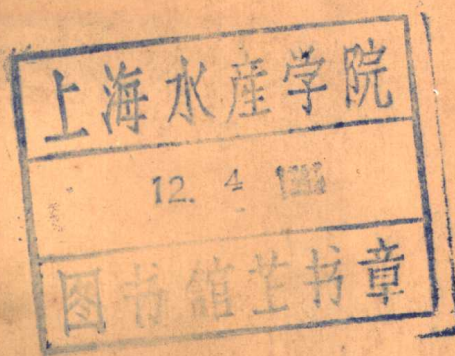 上海水產学院
12. 4
图书館芷书章